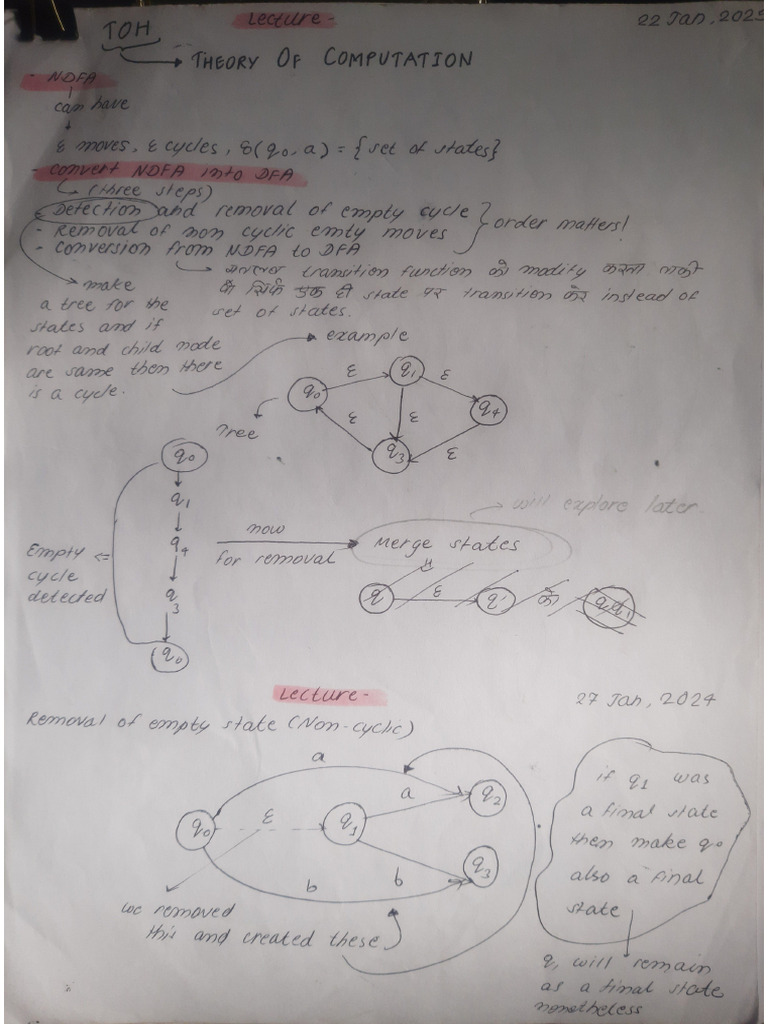 Lecture-
22 Jan, 2025
TOH
THEORY OF COMPUTATION
- NDFA
can have
ε moves, ε cycles, δ(q0, a) = {set of states}
- convert NDFA into DFA
(three steps)
- Detection and removal of empty cycle
- Removal of non cyclic emty moves
- conversion from NDFA to DFA
order matters!
make
a tree for the
states and if
root and child node
are same then there
is a cycle.
मतलब transition function को modify करना
कि सिर्फ एक ही state पर transition करे instead of
set of states.
example
q0 ε q1 ε q4
ε ε ε
q3
Tree
q0
q1
q4
q3
q0
Empty
cycle
detected
now
for removal
Merge states
will explore later.
q ε q' को
Lecture-
27 Jan, 2024
Removal of empty state (Non-cyclic)
a
a q2
q0 ε q1
q3
b b
we removed
this and created these
if q1 was
a final state
then make q0
also a final
state
q, will remain
as a final state
nonetheless